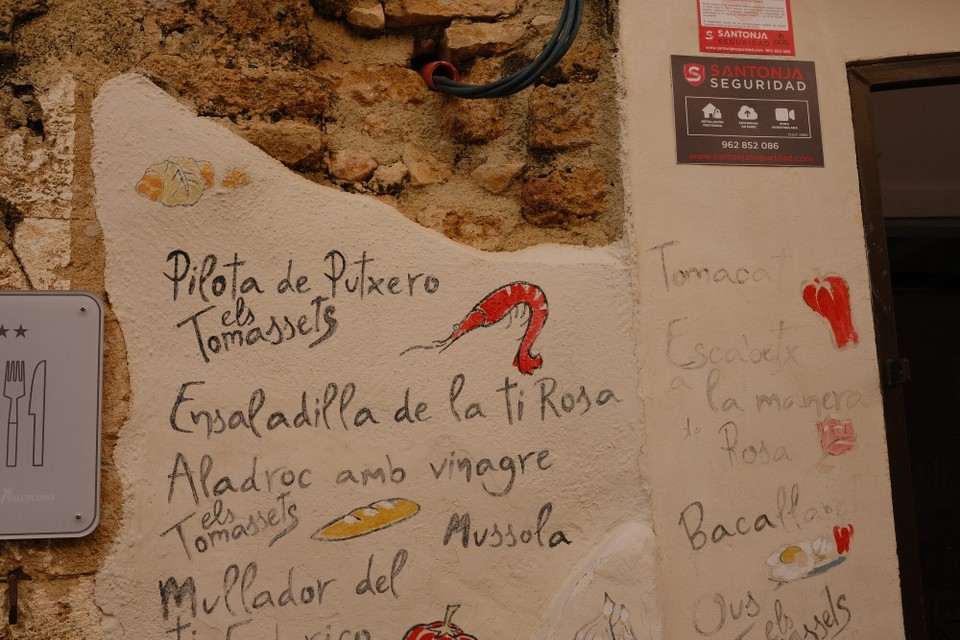 SANTONJA
SEGURIDAD
SANTONJA
SEGURIDAD
962 852 086
www.santonjaseguridad.com
Pilota de Putxero
els
Tomassets
Ensaladilla de la ti Rosa
Aladroc amb vinagre
els
Tomassets
Mussola
Mullador del
ti Federico
Tomacat
Escabetx
a la manera
de Rosa
Bacallar
Ous els